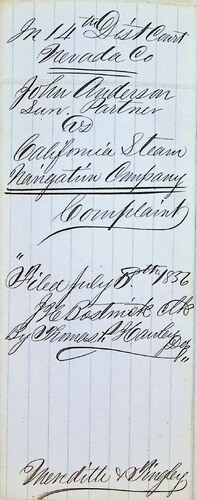 In 14th Dist Court
Nevada Co
John Anderson
Sur. Partner
vs
California Steam
Navigation Company
Complaint
"Filed July 8th 1856
J H Bostwick Clk
By Thomas P Hawley
Dep"
Meredith &